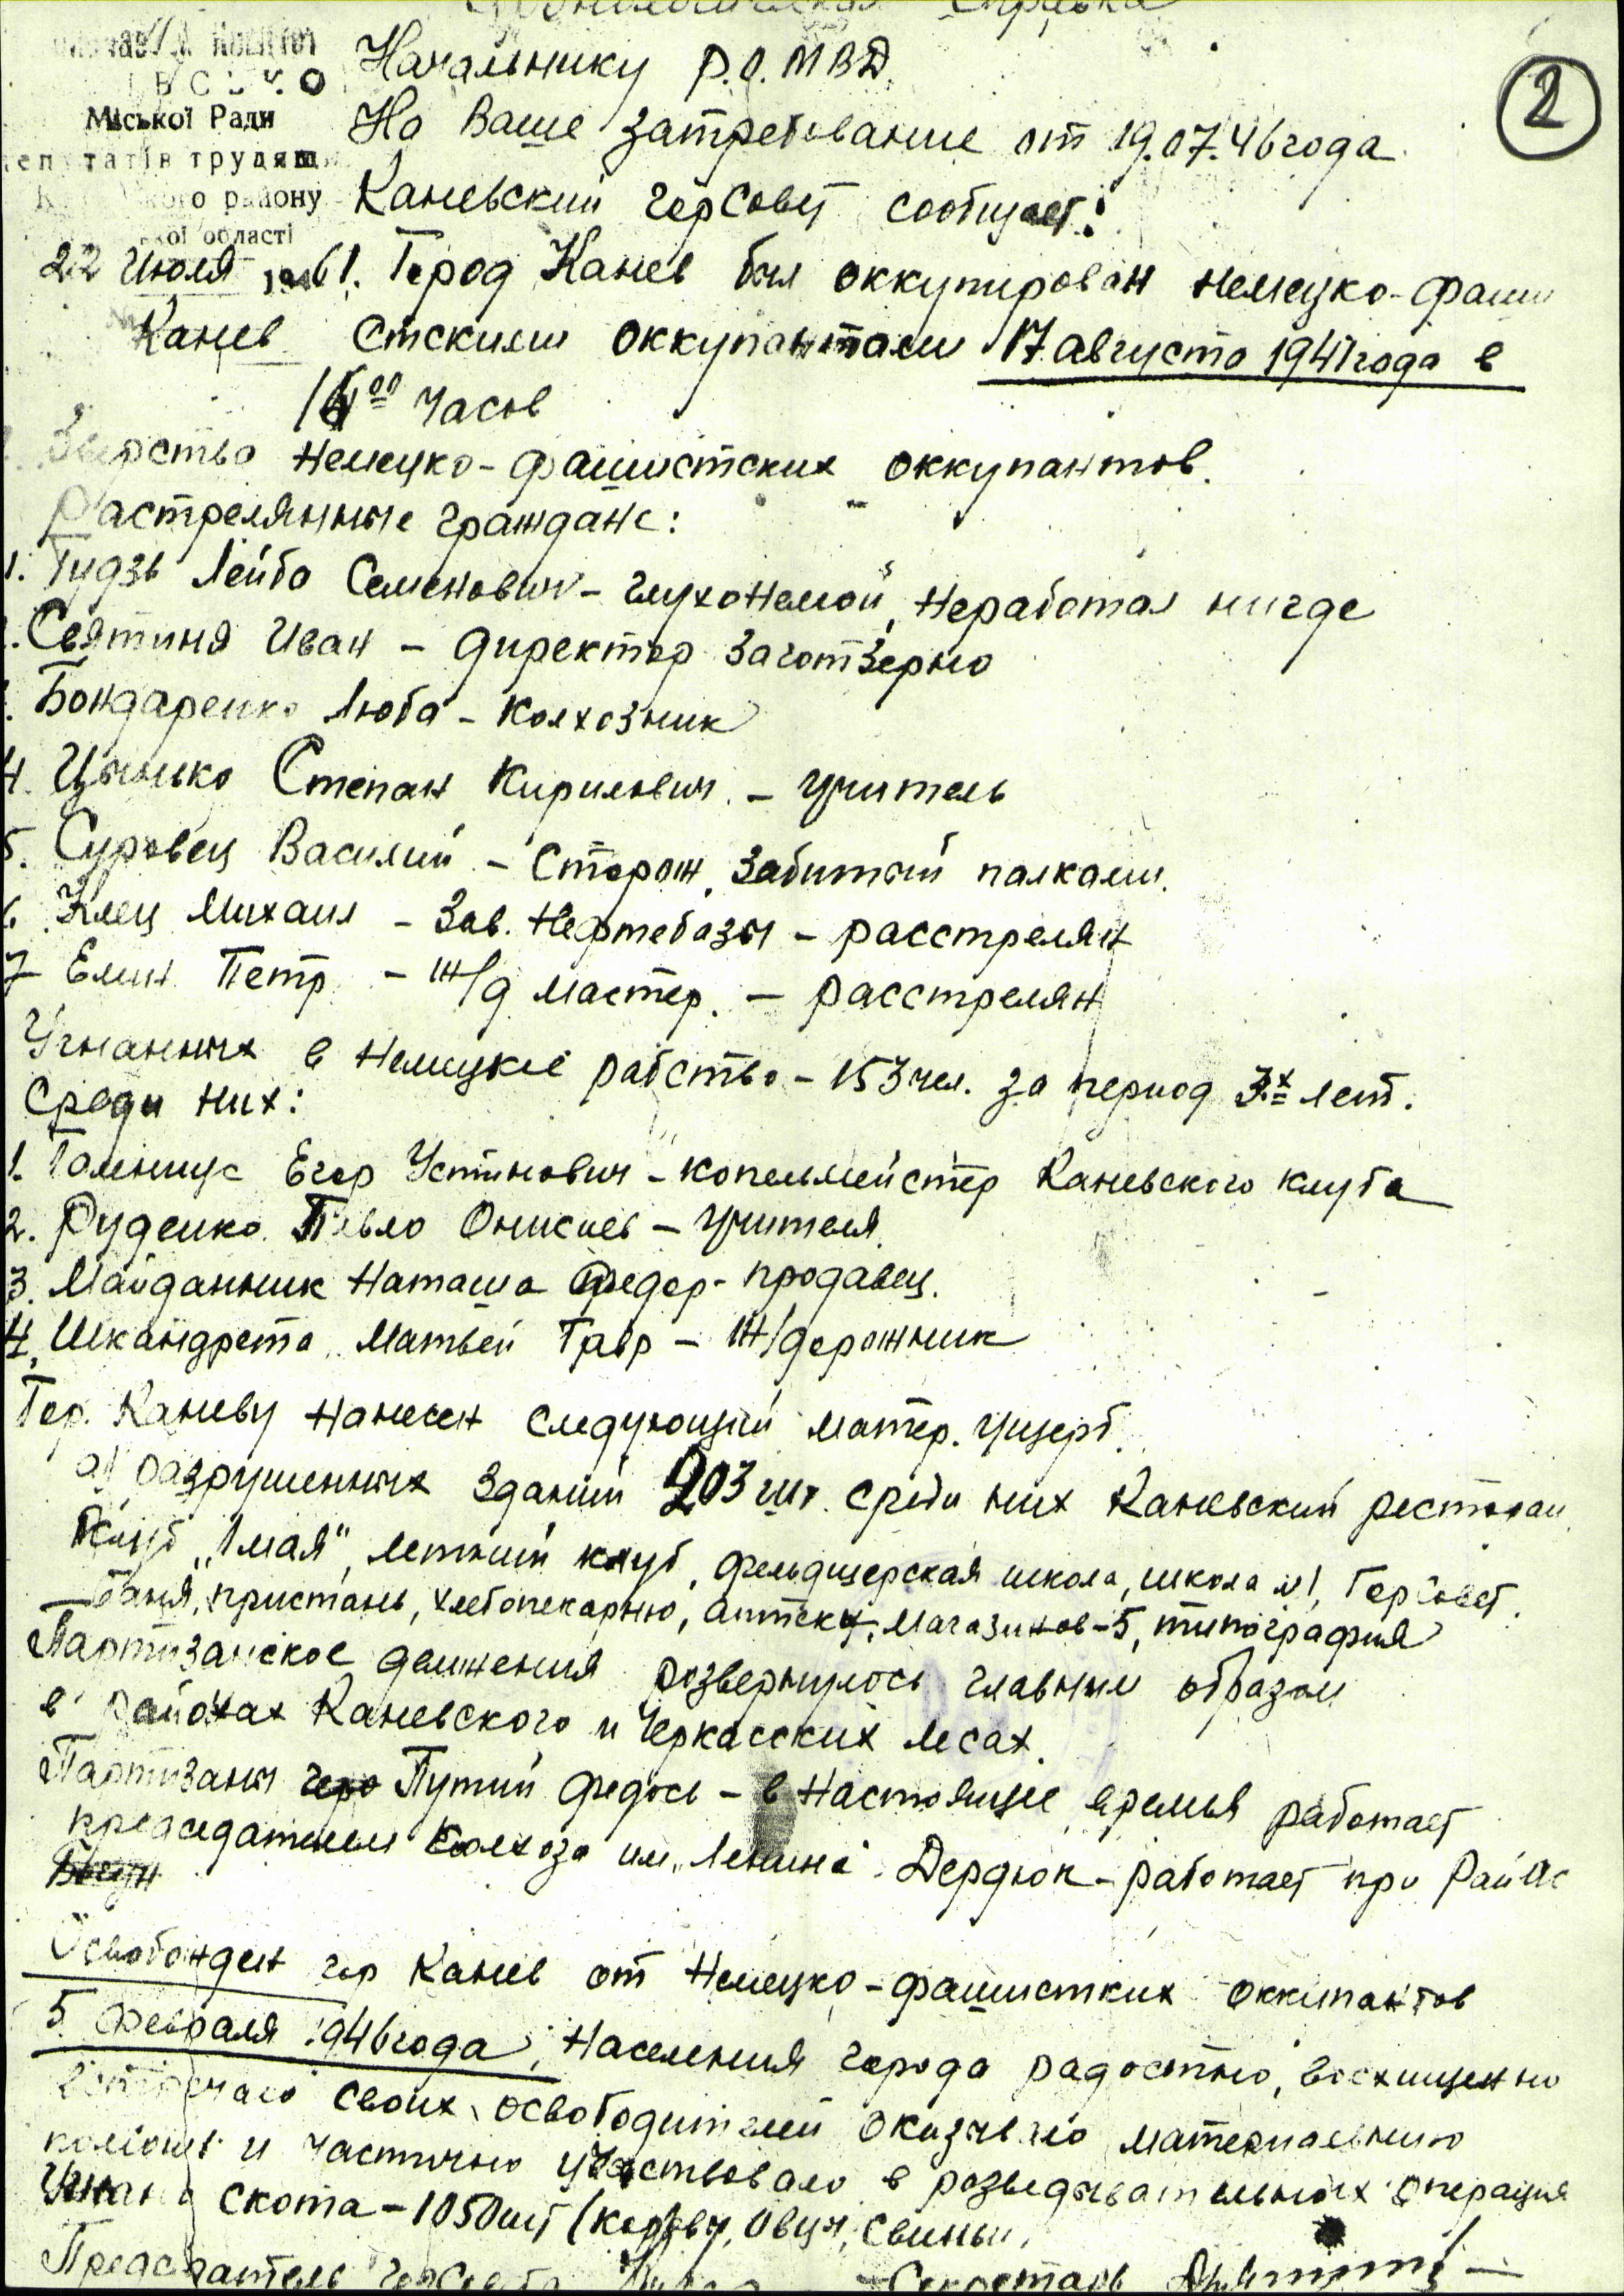 справка
Начальнику Р.О. МВД.
На Ваше затребование от 19.07.46 года
Каневский горсовет сообщает:
Міської Ради
депутатів трудящи
ого району
кої області
22 Июля 1946
Канев
1. Город Канев был оккупирован немецко-фаши
стскими оккупантами 17 августа 1941 года в
16⁰⁰ часов
Зверства немецко-фашистских оккупантов.
Растрелянные граждане:
1. Гудзь Лейба Семенович - глухонемой, неработал нигде
2. Святиня Иван - директор Заготзерно
3. Бондаренко Люба - колхозник
4. Цымбко Степан Кирилович. - учитель
5. Суровец Василий - Сторож, забитый палками.
6. Клец Михаил - Зав. Нефтебазы - расстрелян
7 Емин Петр - ж/д мастер. - расстрелян
Угнанных в немецкое рабство - 153 чел. за период 3х лет.
Среди них:
1. Егор Устинович - капельмейстер Каневского клуба
2. Руденко Павло Онисиев - учителя
3. Майданник Наташа Федор - продавец.
4. Шкандрета Матвей Гавр - ж/дорожник
Гор. Каневу нанесен следующий матер. ущерб.
а) разрушенных зданий 203 шт. среди них Каневский ресторан,
Клуб "1 мая", летний клуб, фельдшерская школа, школа №1, ГорСовет,
баня, пристань, хлебопекарню, аптеку, магазинов-5, типография
Партизанское движения розвернулось главным образом
в районах Каневского и Черкасских лесах.
Партизаны Путий Федось - в настоящее время работает
председателем колхоза им. "Ленина" Дердюк - работает при РайИс
Освобожден гор Канев от немецко-фашистких оккупантов
5 февраля 1946 года, населения города радостно, восхищенно
встречало своих освободителей оказывало материальную
помощь и частично участвовало в розведывательных операция
Угнано скота - 1050 шт (коровы, овцы, свиньи,
Председатель горСовета Секретарь